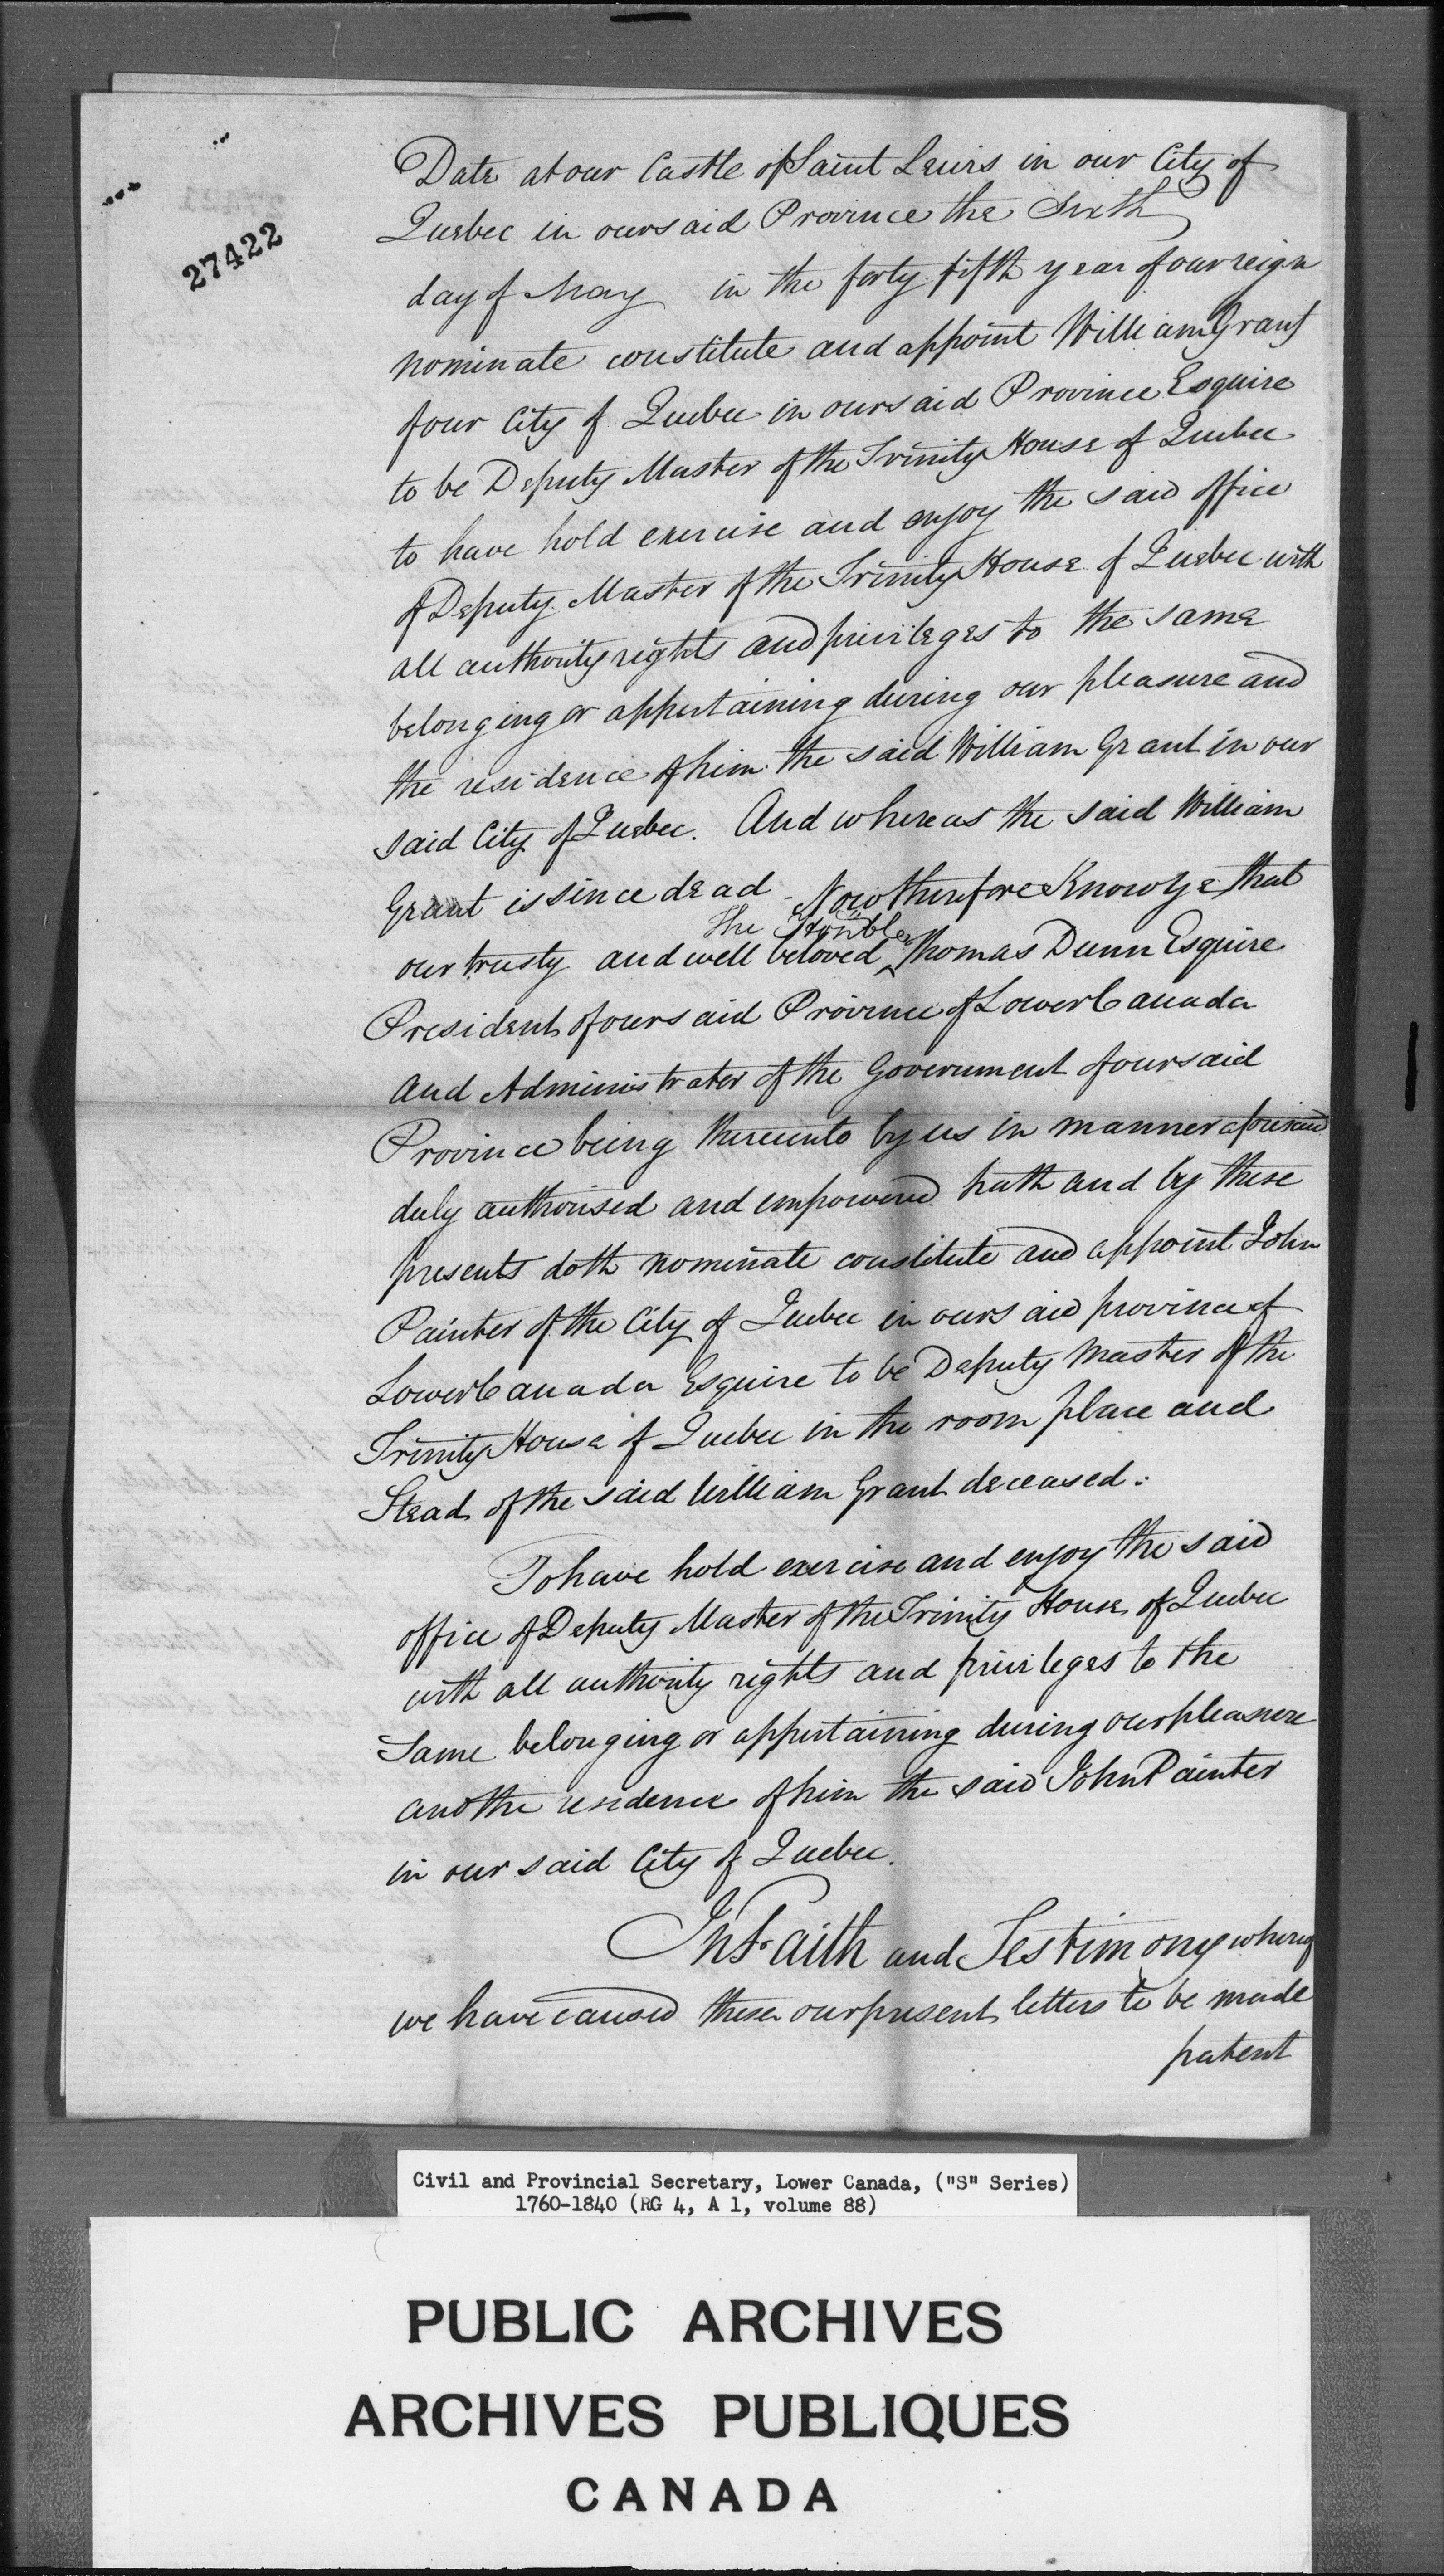 27422
Date at our Castle of Saint Lewis in our City of
Quebec in our said Province the Sixth
day of May in the forty fifth year of our reign
nominate constitute and appoint William Grant
of our City of Quebec in our said Province Esquire
to be Deputy Master of the Trinity House of Quebec
to have hold exercise and enjoy the said office
of Deputy Master of the Trinity House of Quebec with
all authority rights and privileges to the same
belonging or appertaining during our pleasure and
the residence of him the said William Grant in our
said City of Quebec. And whereas the said William
Grant is since dead. Now therefore Know Ye that
The Honble
our trusty and well beloved ^ Thomas Dunn Esquire
President of our said Province of Lower Canada
and Administrator of the Government of our said
Province being thereunto by us in manner aforesaid
duly authorised and empowered hath and by these
presents doth nominate constitute and appoint John
Painter of the City of Quebec in our said province of
Lower Canada Esquire to be Deputy Master of the
Trinity House of Quebec in the room place and
Stead of the said William Grant deceased.
To have hold exercise and enjoy the said
office of Deputy Master of the Trinity House of Quebec
with all authority rights and privileges to the
Same belonging or appertaining during our pleasure
and the residence of him the said John Painter
in our said City of Quebec.
In Faith and Testimony whereof
we have caused these our present letters to be made
patent
Civil and Provincial Secretary, Lower Canada, ("S" Series)
1760-1840 (RG 4, A 1, volume 88)
PUBLIC ARCHIVES
ARCHIVES PUBLIQUES
CANADA